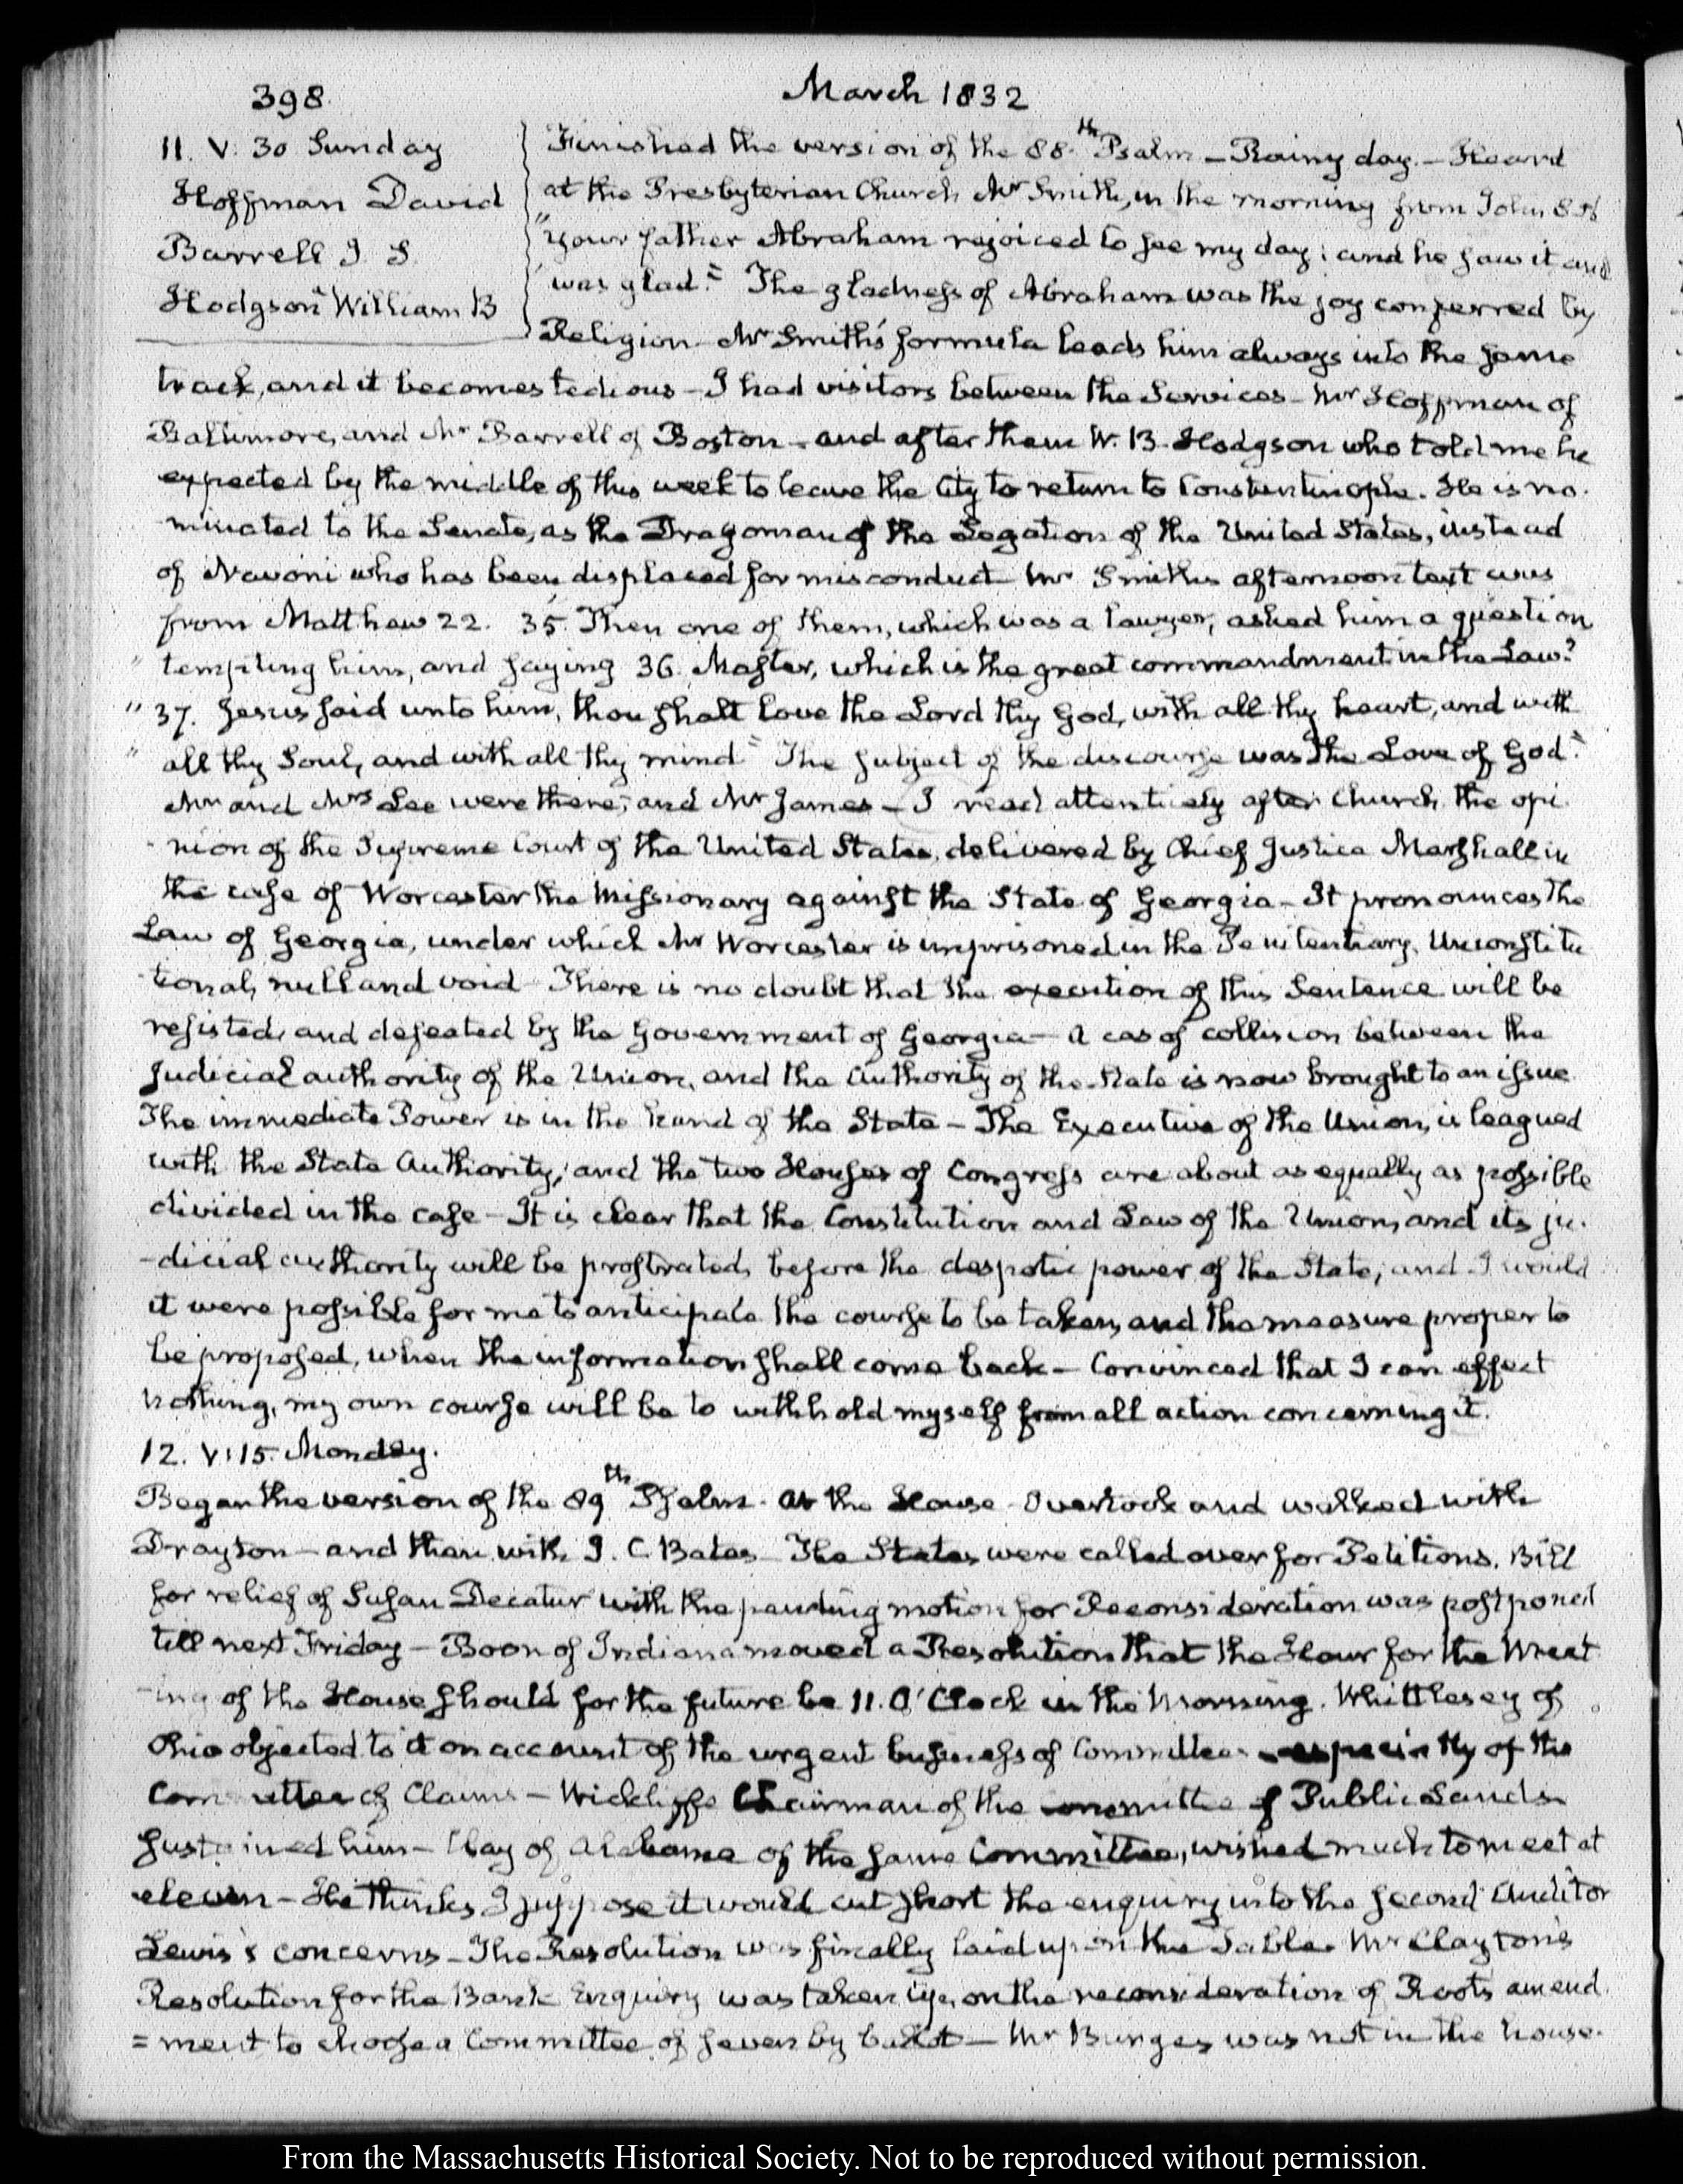 398
March 1832
11. V. 30 Sunday
Hoffman David
Barrell I. S.
Hodgson William B
Finished the version of the 88.th Psalm — Rainy day. — Heard
at the Presbyterian Church Mr Smith, in the morning from John 8.56
"Your father Abraham rejoiced to see my day: and he saw it and
was glad." The gladness of Abraham was the joy conferred by
Religion. Mr Smith's formula leads him always into the same
track, and it becomes tedious — I had visitors between the Services — Mr Hoffman of
Baltimore, and Mr Barrell of Boston — and after them W. B. Hodgson who told me he
expected by the middle of this week to leave the City to return to Constantinople. He is no-
minated to the Senate, as the Dragoman of the Legation of the United States, instead
of Navoni who has been displaced for misconduct — Mr Smith's afternoon text was
from Matthew 22. 35. Then one of them, which was a lawyer, asked him a question
" tempting him, and saying 36. Master, which is the great commandment in the Law?
" 37. Jesus said unto him, thou shalt love the Lord thy God, with all thy heart, and with
" all thy Soul, and with all thy mind" The subject of the discourse was "the Love of God."
Mr and Mrs Lee were there, and Mr James — I read attentively after Church, the opi-
-nion of the Supreme Court of the United States, delivered by Chief Justice Marshall in
the case of Worcester the Missionary against the State of Georgia — It pronounces the
Law of Georgia, under which Mr Worcester is imprisoned in the Penitentiary, Unconstitu
-tional, null and void — There is no doubt that the execution of this Sentence will be
resisted, and defeated by the Government of Georgia — A cas of collision between the
judicial authority of the Union, and the Authority of the State is now brought to an issue.
The immediate Power is in the hand of the State — The Executive of the Union, is leagued
with the State Authority; and the two Houses of Congress are about as equally as possible
divided in the case — It is clear that the Constitution and Law of the Union, and its ju-
-dicial authority will be prostrated, before the despotic power of the State; and I would
it were possible for me to anticipate the course to be taken, and the measure proper to
be proposed, when the information shall come back — Convinced that I can effect
nothing, my own course will be to withhold myself from all action concerning it.
12. V: 15. Monday.
Began the version of the 89th Psalm. At the House. Overtook and walked with
Drayton — and then with I. C. Bates — The States were called over for Petitions. Bill
for relief of Susan Decatur with the pending motion for Reconsideration was postponed
till next Friday — Boon of Indiana moved a Resolution that the Hour for the Meet
-ing of the House should for the future be 11. O'Clock in the Morning. Whittlesey of
Ohio objected to it on account of the urgent business of Committees — especially of the
Committee of Claims — Wickliffe Chairman of the Committee of Public Lands
sustained him — Clay of Alabama of the same Committee, wished much to meet at
eleven — He thinks I suppose it would cut short the enquiry into the second Auditor
Lewis's concerns — The Resolution was finally laid upon the Table. Mr Clayton's
Resolution for the Bank Enquiry was taken up, on the reconsideration of Root's amend
= ment to choose a Committee of seven by ballot — Mr Burges was not in the house.
From the Massachusetts Historical Society. Not to be reproduced without permission.